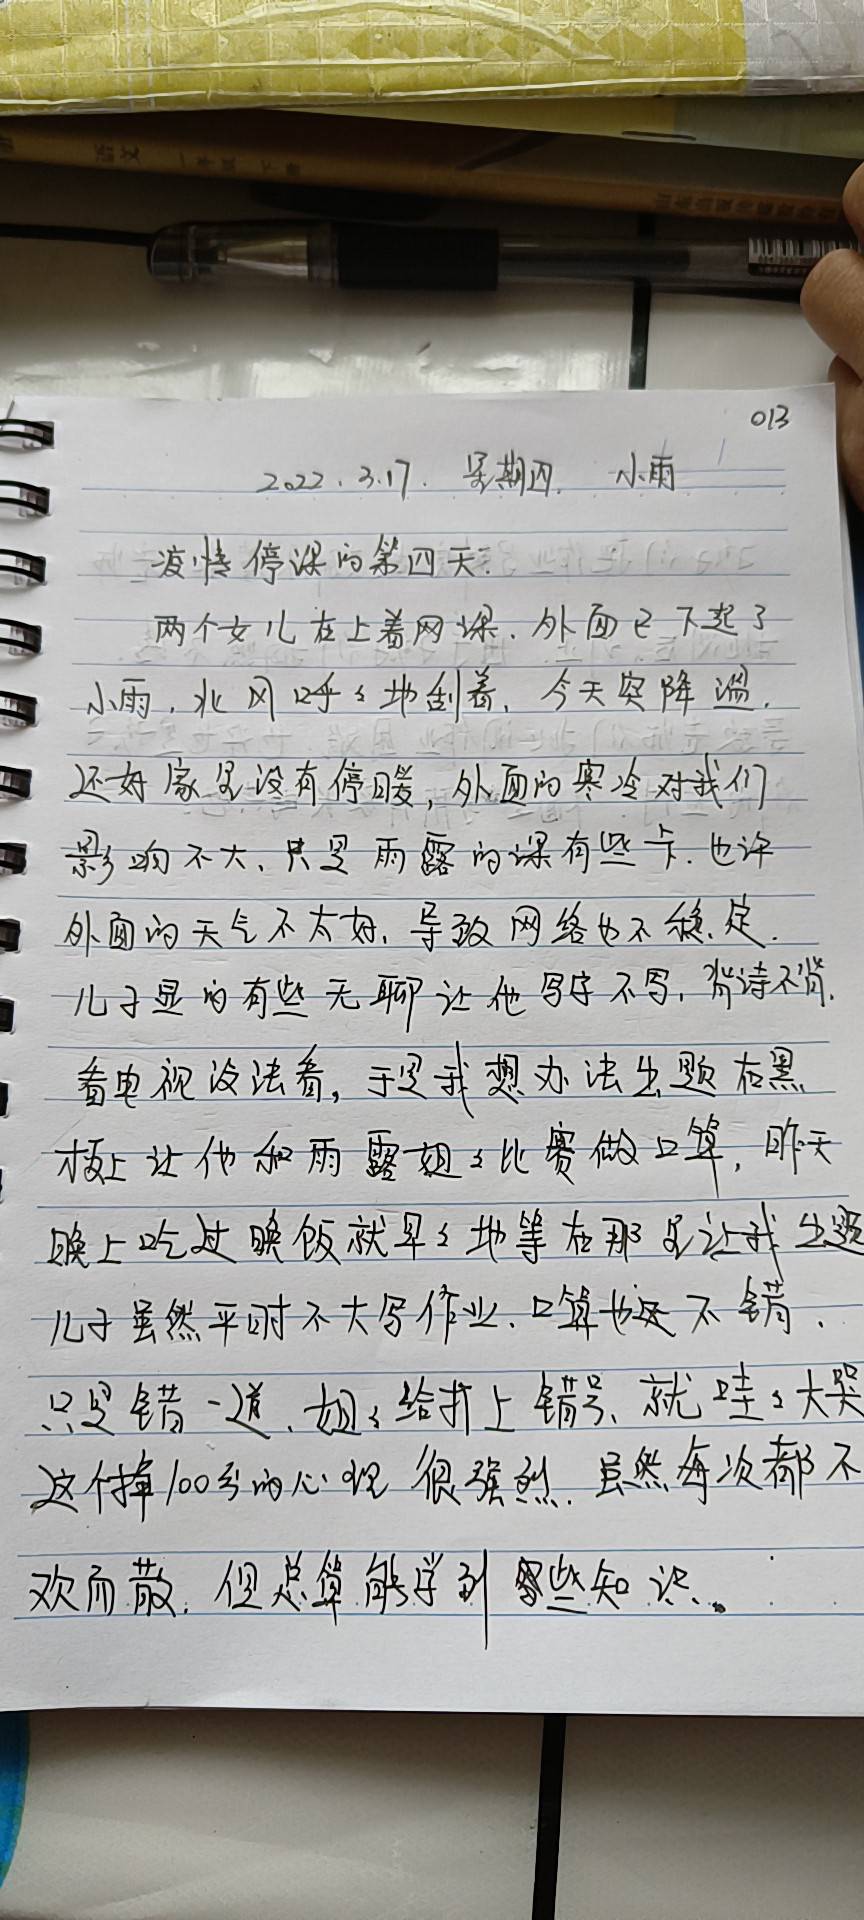 语文 一年级 下册
013
2022.3.17. 星期四. 小雨
疫情停课的第四天:
两个女儿在上着网课.外面已下起了
小雨.北风呼々地刮着.今天突降温.
还好家里没有停暖,外面的寒冷对我们
影响不大.只是雨露的课有些卡.也许
外面的天气不太好.导致网络也不稳定.
儿子显的有些无聊让他写字不写.背诗不背.
看电视没法看,于是我想办法出题在黑
板上让他和雨露姐々比赛做口算,昨天
晚上吃过晚饭就早々地等在那里让我出题
儿子虽然平时不大写作业.口算也还不错.
只是错一道.姐々给打上错号.就哇々大哭
这个掉100分的心理很强烈.虽然每次都不
欢而散.但总算能学到些知识。